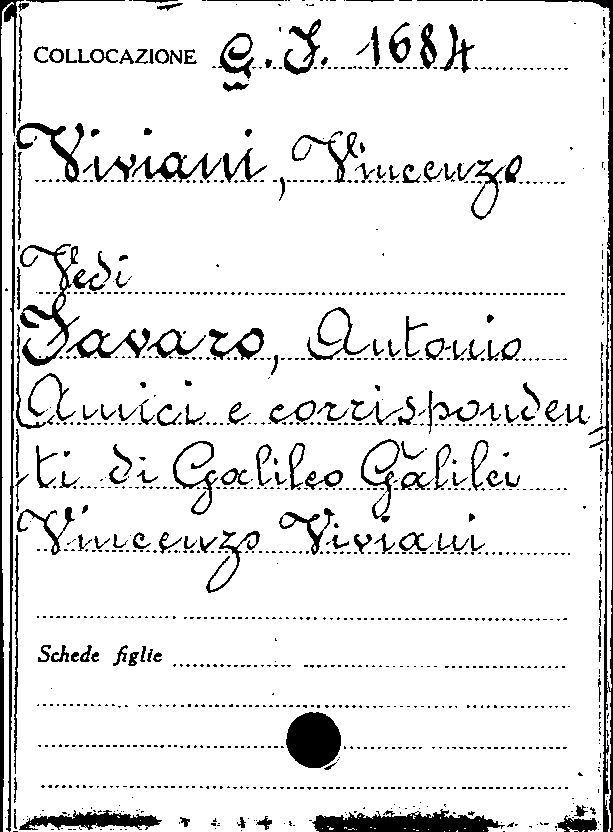 COLLOCAZIONE G. F. 1684
Viviani, Vincenzo
Vedi
Favaro, Antonio
Amici e corrisponden=
ti di Galileo Galilei
Vincenzo Viviani
Schede figlie